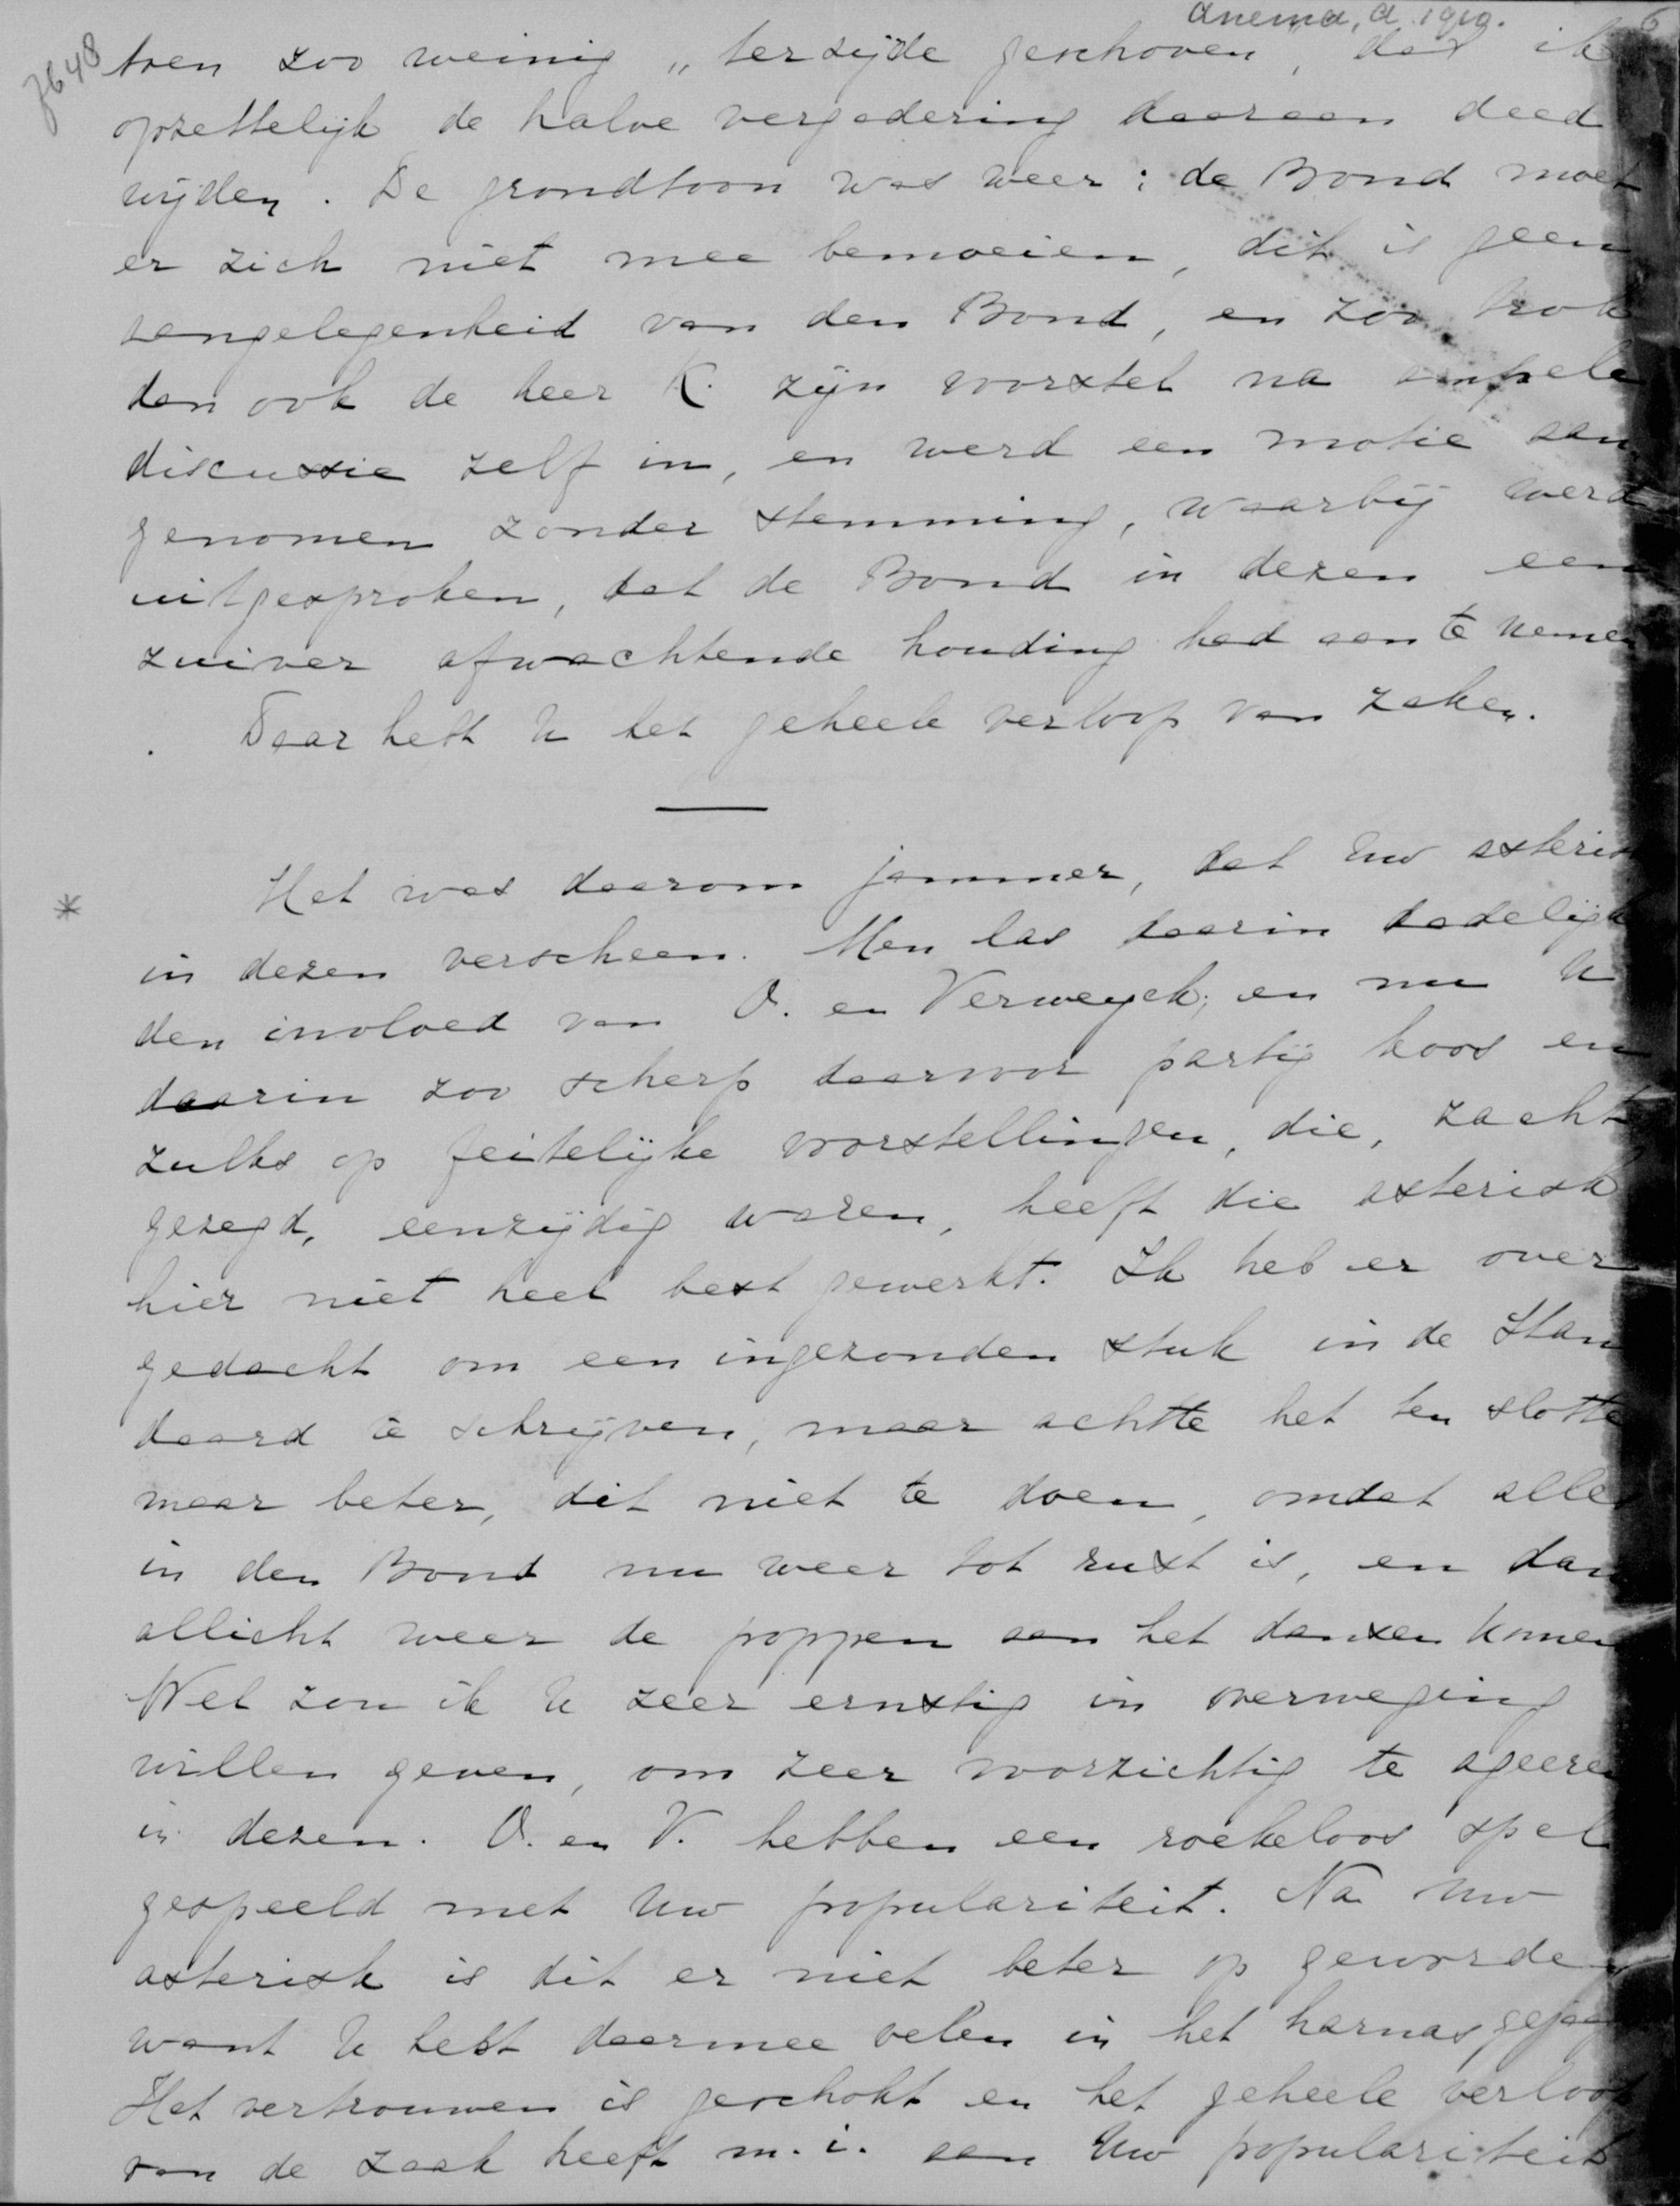 Anema, A. 1919.
6
7648
toen zoo weinig „terzijde geschoven", dat ik
opzettelijk de halve vergadering daaraan deed
wijden. De grondtoon was weer: de Bond moet
er zich niet mee bemoeien, dit is geen
aangelegenheid van den Bond, en zoo trok
dan ook de heer K. zijn voorstel na ampele
discussie zelf in, en werd een motie aan
genomen zonder stemming, waarbij werd
uitgesproken, dat de Bond in dezen een
zuiver afwachtende houding had aan te nemen
Daar hebt U het geheele verloop van zaken.
* Het was daarom jammer, dat Uw asterisk
in dezen verscheen. Men las daarin dadelijk
den invloed van O. en Verweyck; en nu U
daarin zoo scherp daarvoor partij koos en
zulks op feitelijke voorstellingen, die, zacht
gezegd, eenzijdig waren, heeft die asterisk
hier niet heel best gewerkt. Ik heb er over
gedacht om een ingezonden stuk in de Stan
daard te schrijven, maar achtte het ten slotte
maar beter, dit niet te doen, omdat alles
in den Bond nu weer tot rust is, en dan
allicht weer de poppen aan het dansen komen
Wel zou ik U zeer ernstig in overweging
willen geven, om zeer voorzichtig te ageeren
in dezen. O. en V. hebben een roekeloos spel
gespeeld met Uw populariteit. Na Uw
asterisk is dit er niet beter op geworden
want U hebt daarmee velen in het harnas gejaagd
Het vertrouwen is geschokt en het geheele verloop
van de zaak heeft m.i. aan Uw populariteit